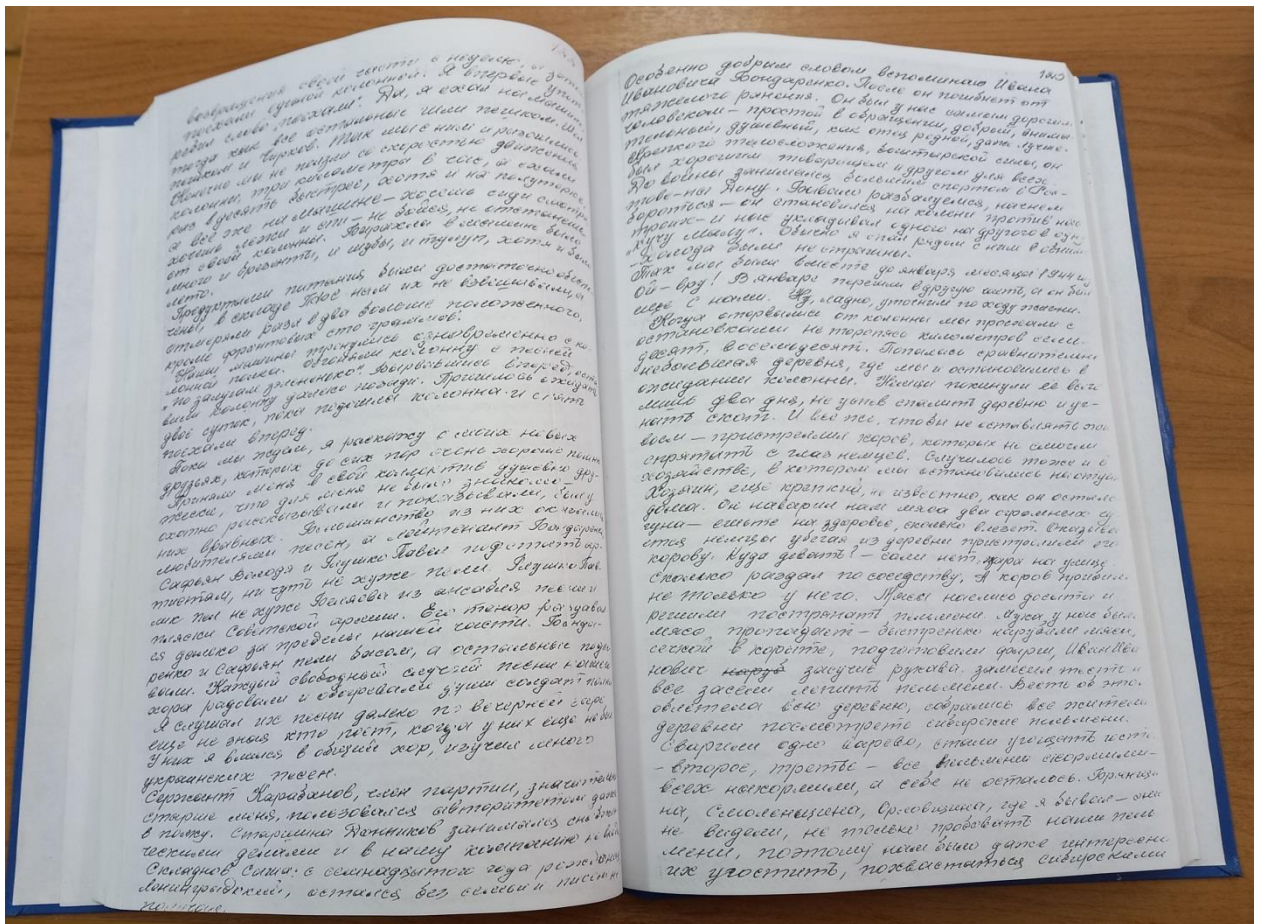 возвращения своей части в неделю, и затем
поехали сушей колонной. Я впервые упот-
ребил слово „поехали". Да, я ехал на машине,
тогда как все остальные шли пешком. Шел
пешком и Чирков. Так мы с ним и разошлись.
мы не ползли со скоростью движения
колонны, три километра в час, а ехали
раз в десять быстрее, хотя и на полуторке,
а все же на машине – хочешь сиди смотри,
хочешь лежи и спи – не бойся, не отстанешь
от своей колонны. Барахла в машине было
много и брезенты, и шубы, и тулуп, хотя и было
лето.
Продуктами питания были достаточно обеспе-
чены, в складе ПФС нам их не взвешивали, а
отмеряли раза в два больше положенного,
кроме фронтовых сто граммов.
Наши машины тронулись одновременно с ко-
лонной полка. Обогнали колонну с песней
Вырвавшись вперед, оста-
вили колонну далеко позади. Пришлось ожидать
двое суток, пока подошла колонна и опять
поехали вперед.
Пока мы ждем, я расскажу о моих новых
друзьях, которых до сих пор очень хорошо помню.
Приняли меня в свой коллектив душевно, дру-
жески, что для меня не было знакомо –
охотно рассказывали и показывали, был у
них вравных. Большинство из них оказались
любителями песен, а лейтенант Бондаренко,
Сафьян Володя и Глушко Павел подстать ар-
тистам, ни чуть не хуже пели. Глушко Пав-
лик пел не хуже Беляева из ансабля песни и
пляски Советской армии. Его тенор раздавал-
ся далеко за пределы нашей части. Бонда-
ренко и Сафьян пели басом, а остальные подпе-
вали. Каждый свободный случай песни нашего
хора радовали и согревали души солдат полка.
Я слушал их песни далеко по вечерней заре
еще не зная кто поет, когда у них еще не был.
У них я влился в общий хор, изучил много
украинских песен.
Сержант Карабанов, член партии, значительно
старше меня, пользовался авторитетом даже
в полку. Старшина Данников занимался снаб-
ческими делами и в нашу компанию не
Складнов Саша: с семнадцатого года рождения,
ленинградский, остался без семьи и писем не
получал.
Особенно добрым словом вспоминаю Ивана
Ивановича Бондаренко. После он погибнет от
тяжелого ранения. Он был у нас самым дорогим
человеком – простой в обращении, добрый, внима-
тельный, душевный, как отец родной, даже лучше.
Крепкого телосложения, богатырской силы, он
был хорошим товарищем и другом для всех.
До войны занимался большим спортом в Рос-
тове-на Дону. Бывало разбалуемся, начнем
бороться – он становился на колени против нас
троих – и нас укладывал одного на другого в одну
„кучу малу". Обычно я спал рядом с ним в обним-
- холода были не страшны.
Так мы были вместе до января месяца 1944 и,
Ой – вру! В январе перешли в другую часть, а он был
еще с нами. Ну, ладно, уточним по ходу жизни.
Когда оторвались от колонны мы проехали с
остановками не торопясь километров семь-
десят, восемьдесят. Попалась сравнительно
небольшая деревня, где мы и остановились в
ожидании колонны. Немцы покинули ее всего
лишь два дня, не успев спалить деревню и уг-
нать скот. И все же, чтобы не оставлять
– пристрелили коров, которых не смогли
спрятать с глаз немцев. Случилось тоже и в
хозяйстве, в котором мы остановились на отдых.
Хозяин, еще крепкий, не известно, как он остался
дома. Он наварил нам мяса два огромных чу-
гуна – ешьте на здоровье, сколько влезет. Оказыва-
ется немцы убегая из деревни пристрелили его
корову. Куда девать? – соли нет, жара на улице.
Сколько раздал по соседству. А коров прибили
не только у него. Мяса наелись досыта и
решили постряпать пельмени. Мука у нас была,
мясо пропадает – быстренько нарубили мяса,
сечкой в корыте, подготовили фарш, Иван Ива-
нович засучив рукава замесил тесто и
все засели лепить пельмени. Весть об этом
облетела всю деревню, собрались все жители
деревни посмотреть сибирские пельмени.
Сварили одно варево, стали угощать
– второе, третье – все пельмени скормили –
всех накормили, а себе не осталось. Брянщи-
на, Смоленщина, Орловщина, где я бывал – они
не видели, не только пробовать наши пель-
мени, поэтому нам было даже интересно
их угостить, похвастаться сибирскими